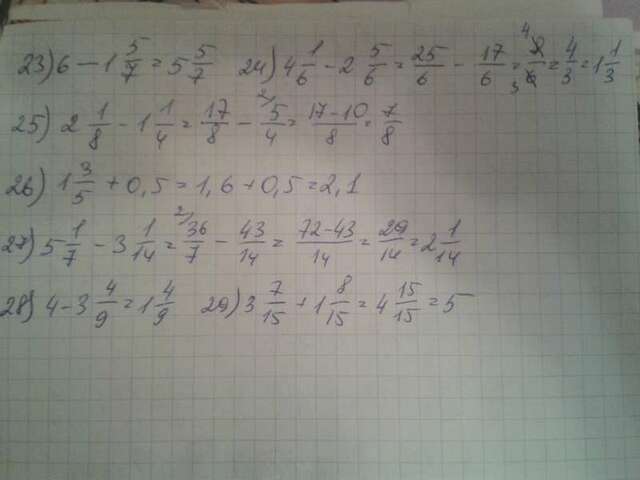 23) 6 - 1 5/7 = 5 5/7 24) 4 1/6 - 2 5/6 = 25/6 - 17/6 = 8/6 = 4/3 = 1 1/3
25) 2 1/8 - 1 1/4 = 17/8 - 5/4 = 17-10/8 = 7/8
26) 1 3/5 + 0,5 = 1,6 + 0,5 = 2,1
27) 5 1/7 - 3 1/14 = 36/7 - 43/14 = 72-43/14 = 29/14 = 2 1/14
28) 4 - 3 4/9 = 1 4/9 29) 3 7/15 + 1 8/15 = 4 15/15 = 5